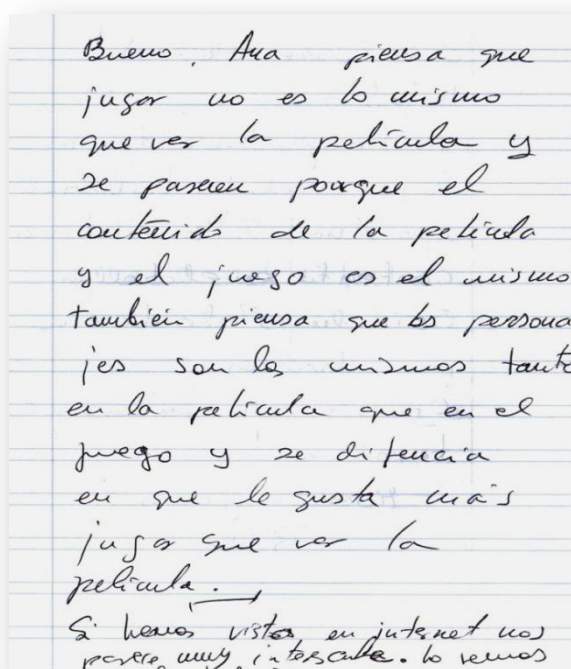 Bueno. Ana piensa que
jugar no es lo mismo
que ver la película y
se parecen porque el
contenido de la película
y el juego es el mismo
también piensa que los persona
jes son los mismos tanto
en la película que en el
juego y se difencia
en que le gusta más
jugar que ver la
película.
Si hemos vistos en internet nos
parece muy interesante. lo vemos